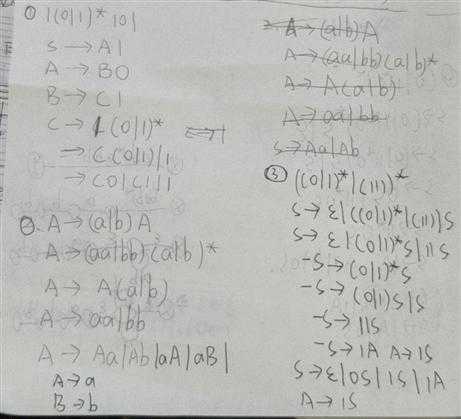 ① 1(0|1)*101
S → A1
A → B0
B → C1
C → 1(0|1)*
⇒ C(0|1)|1
→ C0|C1|1
②. A → (a|b)A
A → (aa|bb)(a|b)*
A → A(a|b)
A → aa|bb
A → Aa|Ab|aA|aB|
A → a
B → b
2. A → (a|b)A
A → (aa|bb)(a|b)*
A → A(a|b)
A → aa|bb
S → Aa|Ab
③ ((0|1)*|(11))*
S → ε|((0|1)*|(11))S
S → ε|(0|1)*S|11S
-S → (0|1)*S
-S → (0|1)S|S
-S → 11S
-S → 1A A → 1S
S → ε|0S|1S|1A
A → 1S